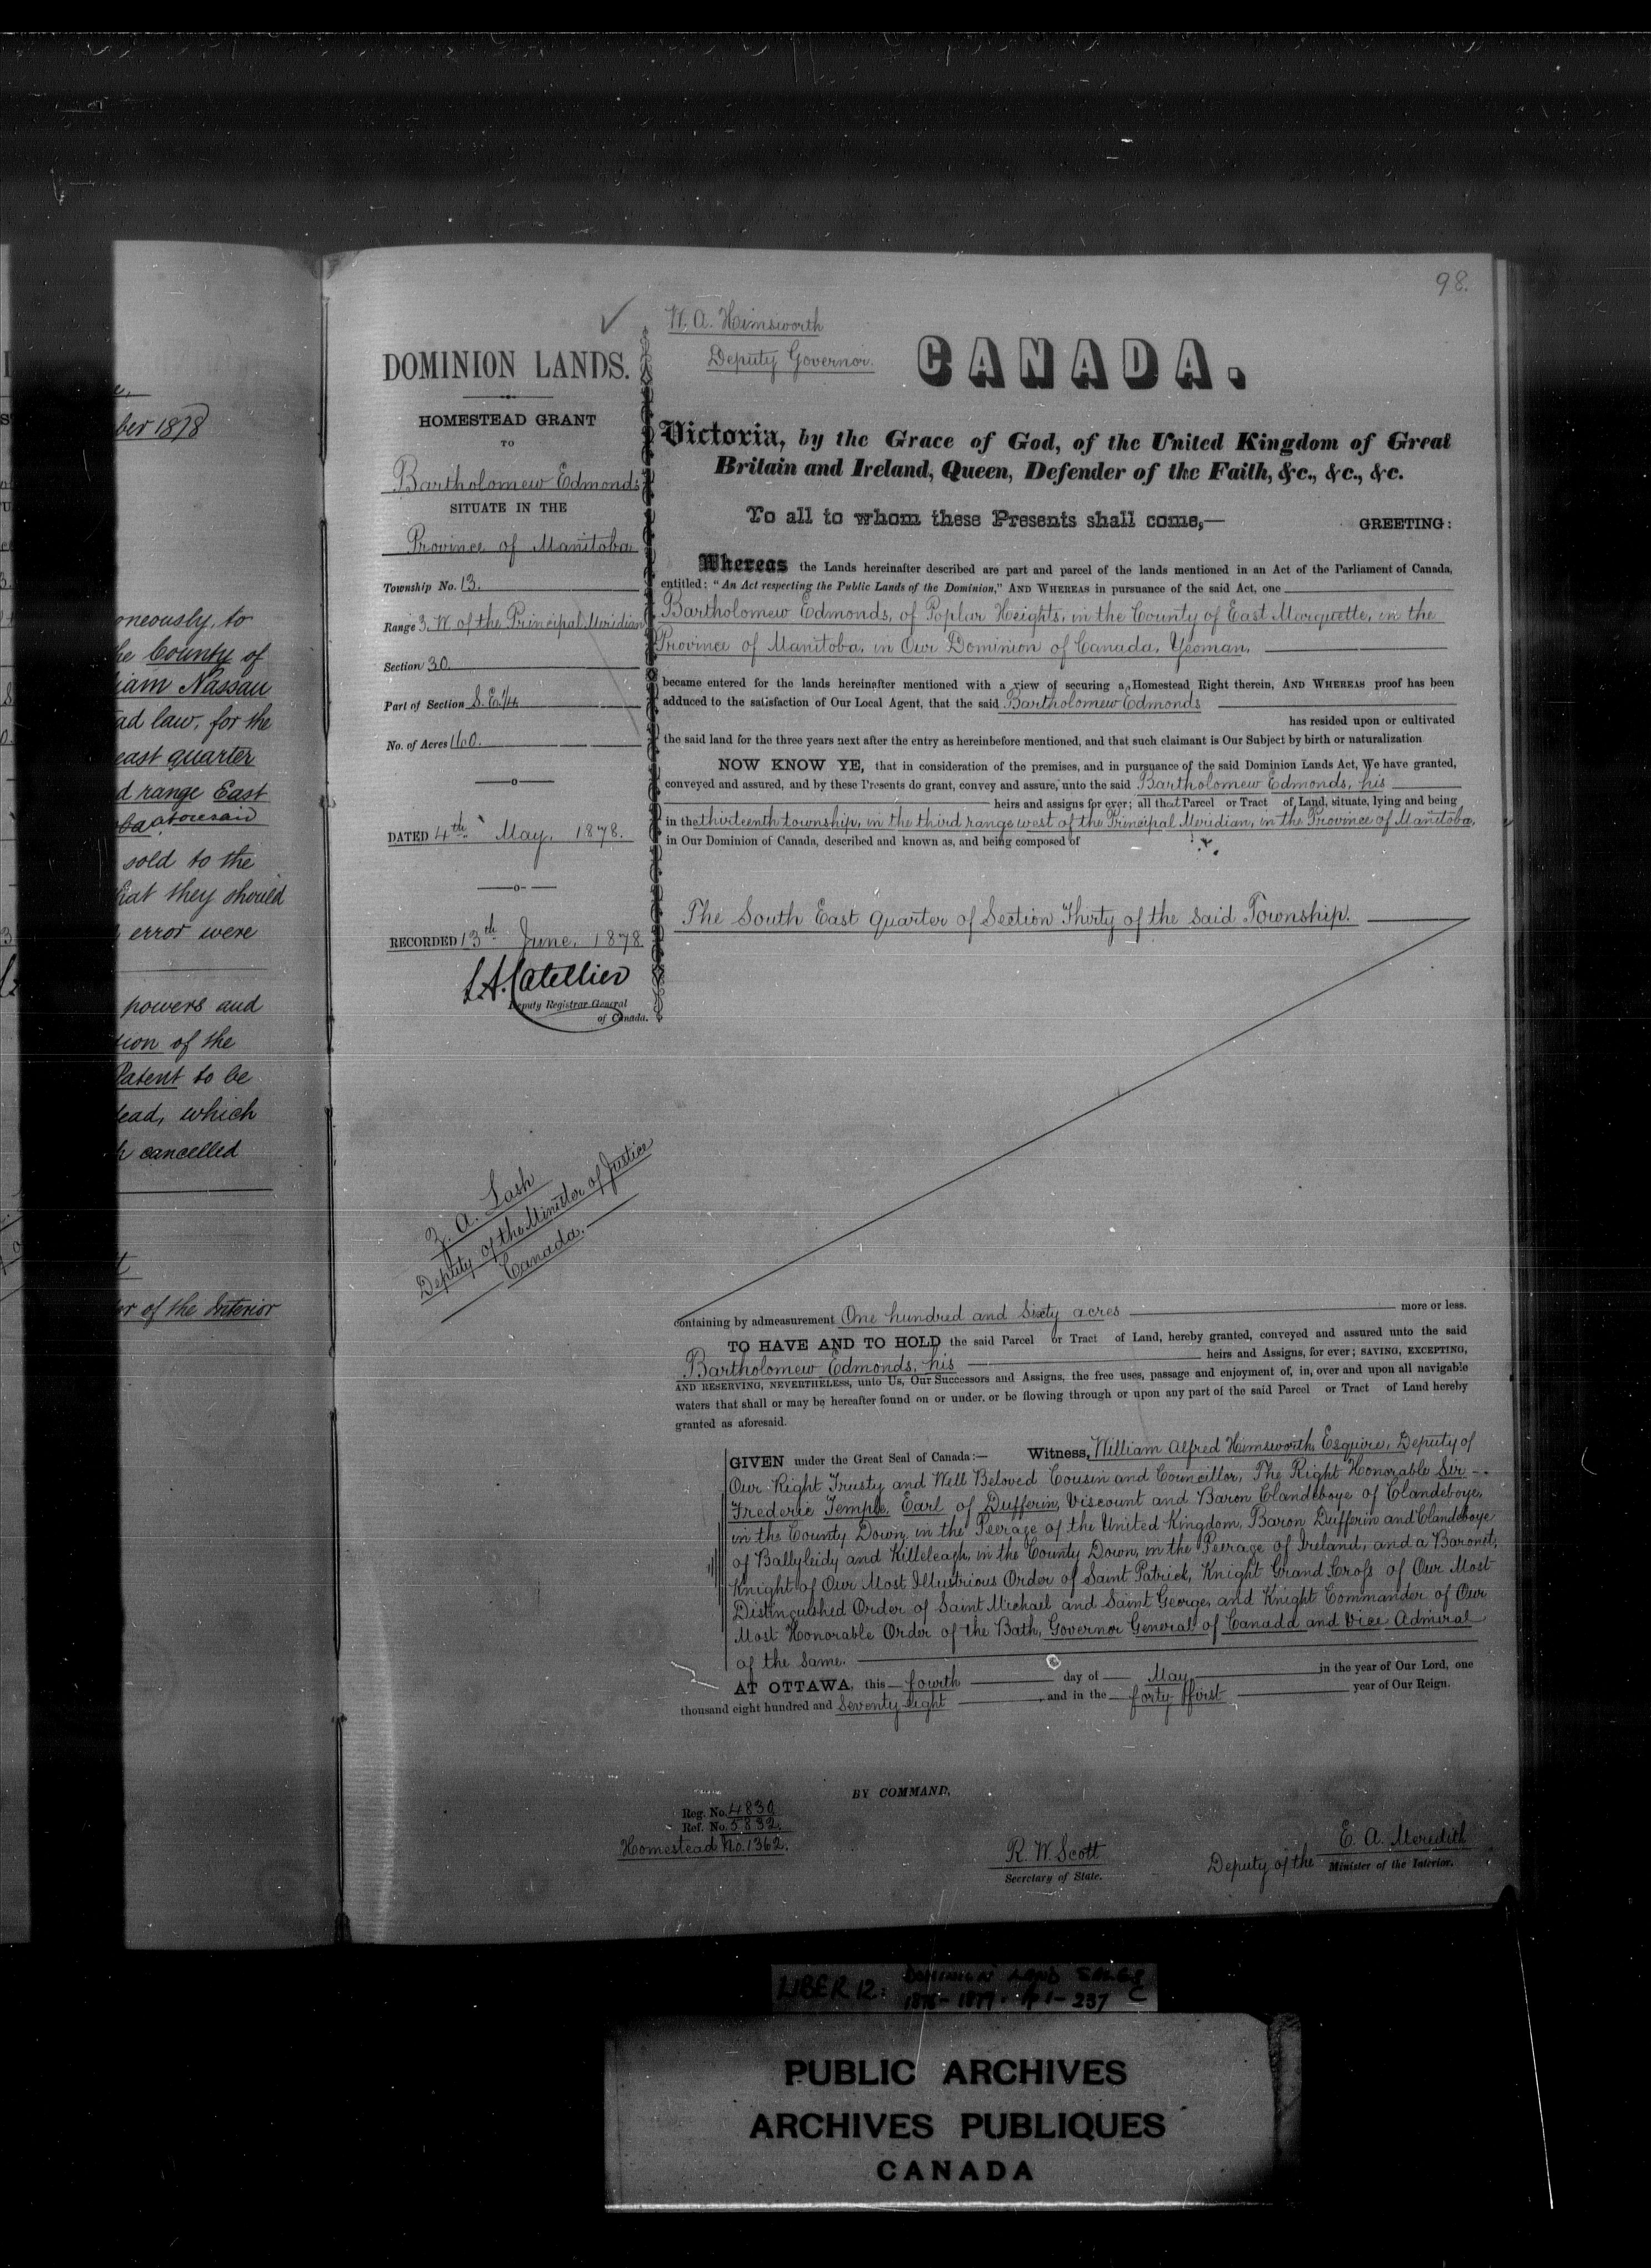 ber 1878
oneously, to
he County of
iam Nassau
ad law, for the
east quarter
d range East
ba aforesaid
sold to the
hat they should
error were
powers and
tion of the
Patent to be
ead, which
cancelled
or of the Interior
98.
W. A. Himsworth
Deputy Governor.
CANADA.
DOMINION LANDS.
HOMESTEAD GRANT
TO
Bartholomew Edmonds
SITUATE IN THE
Province of Manitoba
Township No. 13.
Range 3, W of the Principal Meridian
Section 30.
Part of Section S. E. 1/4
No. of Acres 160.
DATED 4th May, 1878.
RECORDED 13th June, 1878
L.A. Catellier
Deputy Registrar General
of Canada.
Z. A. Lash
Deputy of the Minister of Justice
Canada.
Victoria, by the Grace of God, of the United Kingdom of Great
Britain and Ireland, Queen, Defender of the Faith, &c., &c., &c.
To all to whom these Presents shall come,— GREETING:
Whereas the Lands hereinafter described are part and parcel of the lands mentioned in an Act of the Parliament of Canada,
entitled: "An Act respecting the Public Lands of the Dominion," AND WHEREAS in pursuance of the said Act, one
Bartholomew Edmonds, of Poplar Heights, in the County of East Marquette, in the
Province of Manitoba, in Our Dominion of Canada, Yeoman,
became entered for the lands hereinafter mentioned with a view of securing a Homestead Right therein, AND WHEREAS proof has been
adduced to the satisfaction of Our Local Agent, that the said Bartholomew Edmonds
has resided upon or cultivated
the said land for the three years next after the entry as hereinbefore mentioned, and that such claimant is Our Subject by birth or naturalization
NOW KNOW YE, that in consideration of the premises, and in pursuance of the said Dominion Lands Act, We have granted,
conveyed and assured, and by these Presents do grant, convey and assure, unto the said Bartholomew Edmonds, his
heirs and assigns for ever; all that Parcel or Tract of Land, situate, lying and being
in the thirteenth township, in the third range west of the Principal Meridian, in the Province of Manitoba,
in Our Dominion of Canada, described and known as, and being composed of
The South East quarter of Section Thirty of the said Township.
containing by admeasurement One hundred and Sixty acres more or less.
TO HAVE AND TO HOLD the said Parcel or Tract of Land, hereby granted, conveyed and assured unto the said
Bartholomew Edmonds, his heirs and Assigns, for ever; SAVING, EXCEPTING,
AND RESERVING, NEVERTHELESS, unto Us, Our Successors and Assigns, the free uses, passage and enjoyment of, in, over and upon all navigable
waters that shall or may be hereafter found on or under, or be flowing through or upon any part of the said Parcel or Tract of Land hereby
granted as aforesaid.
GIVEN under the Great Seal of Canada:— Witness, William Alfred Himsworth, Esquire, Deputy of
Our Right Trusty and Well Beloved Cousin and Councillor, The Right Honorable Sir
Frederic Temple, Earl of Dufferin, Viscount and Baron Clandeboye of Clandeboye,
in the County Down, in the Peerage of the United Kingdom, Baron Dufferin and Clandeboye
of Ballyleidy and Killeleagh, in the County Down, in the Peerage of Ireland, and a Baronet,
Knight of Our Most Illustrious Order of Saint Patrick, Knight Grand Cross of Our Most
Distinguished Order of Saint Michael and Saint George, and Knight Commander of Our
Most Honorable Order of the Bath, Governor General of Canada and Vice Admiral
of the same.
AT OTTAWA, this fourth day of May in the year of Our Lord, one
thousand eight hundred and Seventy eight and in the forty first year of Our Reign.
BY COMMAND,
Reg. No. 4830
Ref. No. 5832.
Homestead No. 1362.
R. W. Scott
Secretary of State.
E. A. Meredith
Deputy of the Minister of the Interior.
LIBER 12: DOMINION LAND SALES
PUBLIC ARCHIVES
ARCHIVES PUBLIQUES
CANADA